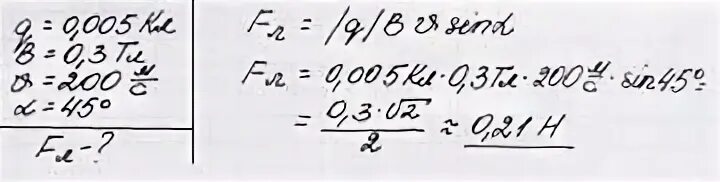 q = 0,005 Кл
B = 0,3 Тл
υ = 200 м/с
α = 45°
Fл - ?
Fл = /q/ B υ sinα
Fл = 0,005 Кл · 0,3 Тл · 200 м/с · sin 45° =
= 0,3 · √2 / 2 ≈ 0,21 Н